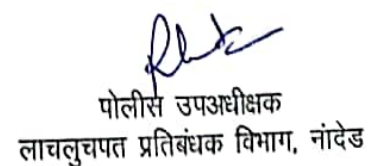 पोलीस उपअधीक्षक
लाचलुचपत प्रतिबंधक विभाग, नांदेड